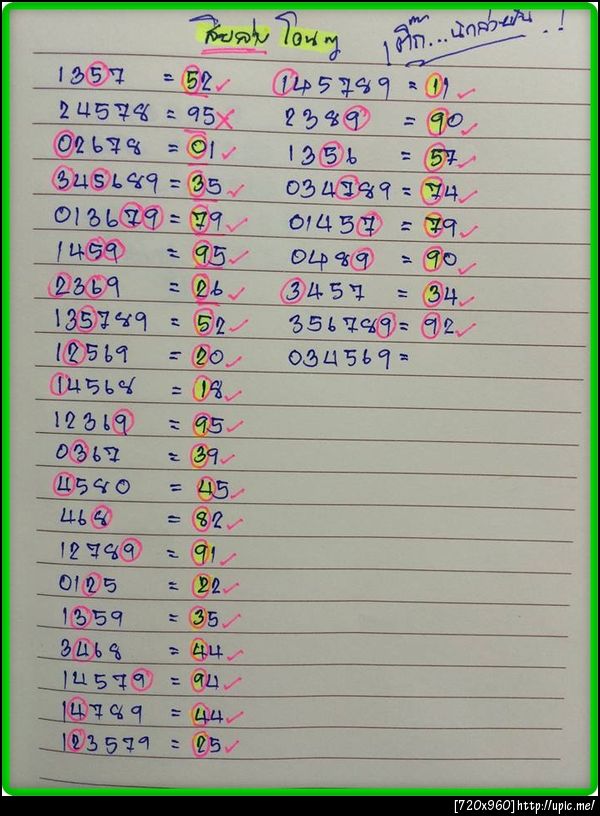 สิบล่าง โดนๆ
เต๊ก...นักล่าฝัน..!
1357 = 52 ✓
24578 = 95 ✗
02678 = 01 ✓
345689 = 35 ✓
013679 = 79 ✓
1459 = 95 ✓
2369 = 26 ✓
135789 = 52 ✓
12569 = 20 ✓
14568 = 18 ✓
12369 = 95 ✓
0367 = 39 ✓
4580 = 45 ✓
468 = 82 ✓
12789 = 91 ✓
0125 = 22 ✓
1359 = 35 ✓
3468 = 44 ✓
14579 = 94 ✓
14789 = 44 ✓
123579 = 25 ✓
145789 = 11 ✓
2389 = 90 ✓
1356 = 57 ✓
034789 = 74 ✓
01457 = 79 ✓
0489 = 90 ✓
3457 = 34 ✓
356789 = 92 ✓
034569 =
[720x960]http://upic.me/